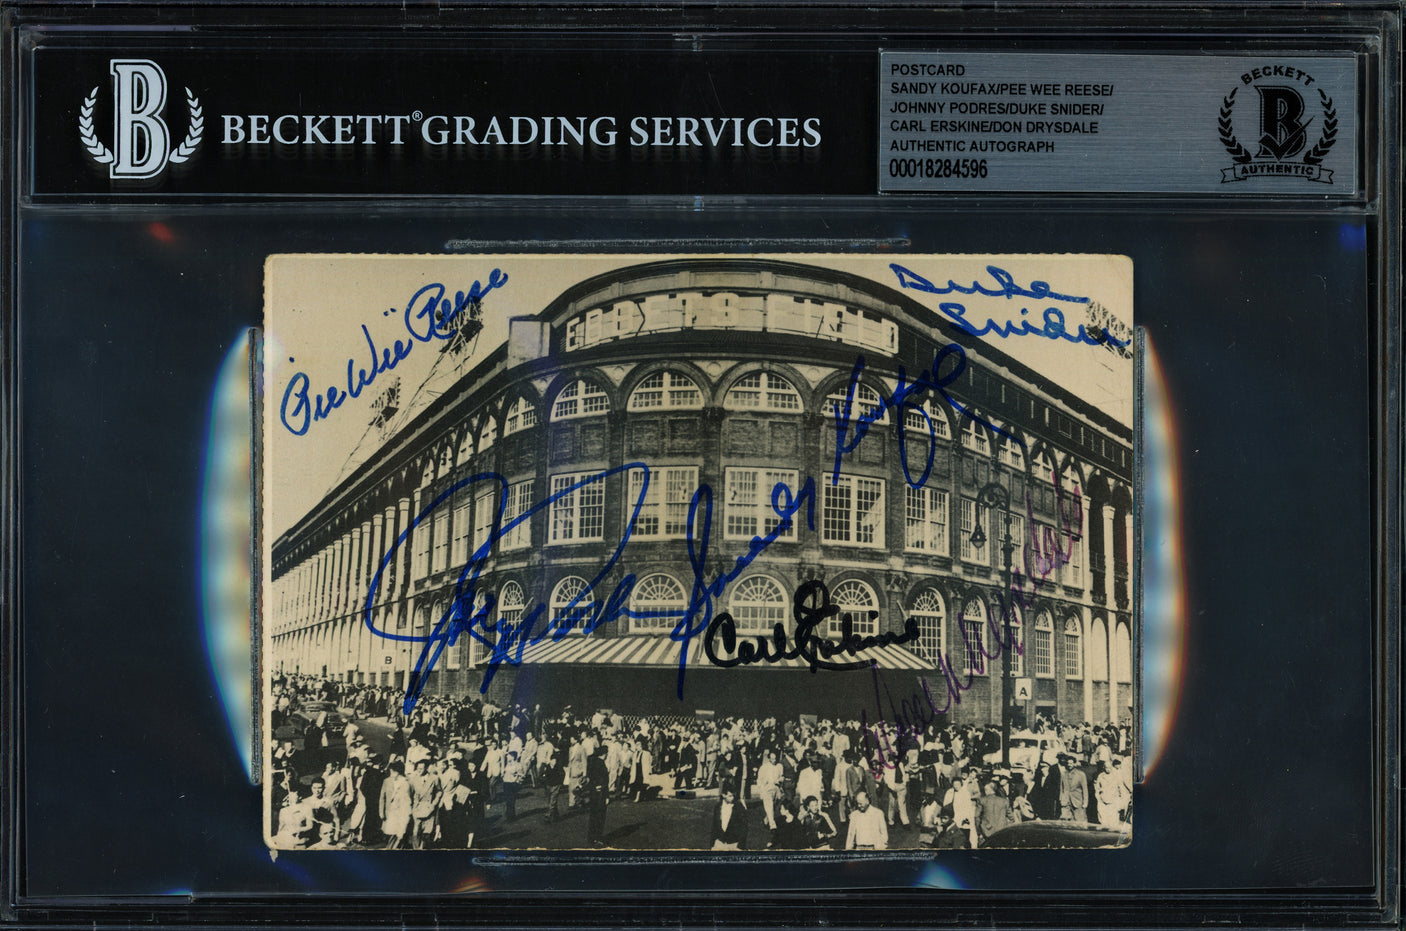 BECKETT® GRADING SERVICES
POSTCARD
SANDY KOUFAX/PEE WEE REESE/
JOHNNY PODRES/DUKE SNIDER/
CARL ERSKINE/DON DRYSDALE
AUTHENTIC AUTOGRAPH
00018284596
B
BECKETT
B
AUTHENTIC
Pee Wee Reese
Duke
Snider
EBBETS FIELD
Sandy Koufax
Carl Erskine
B
A